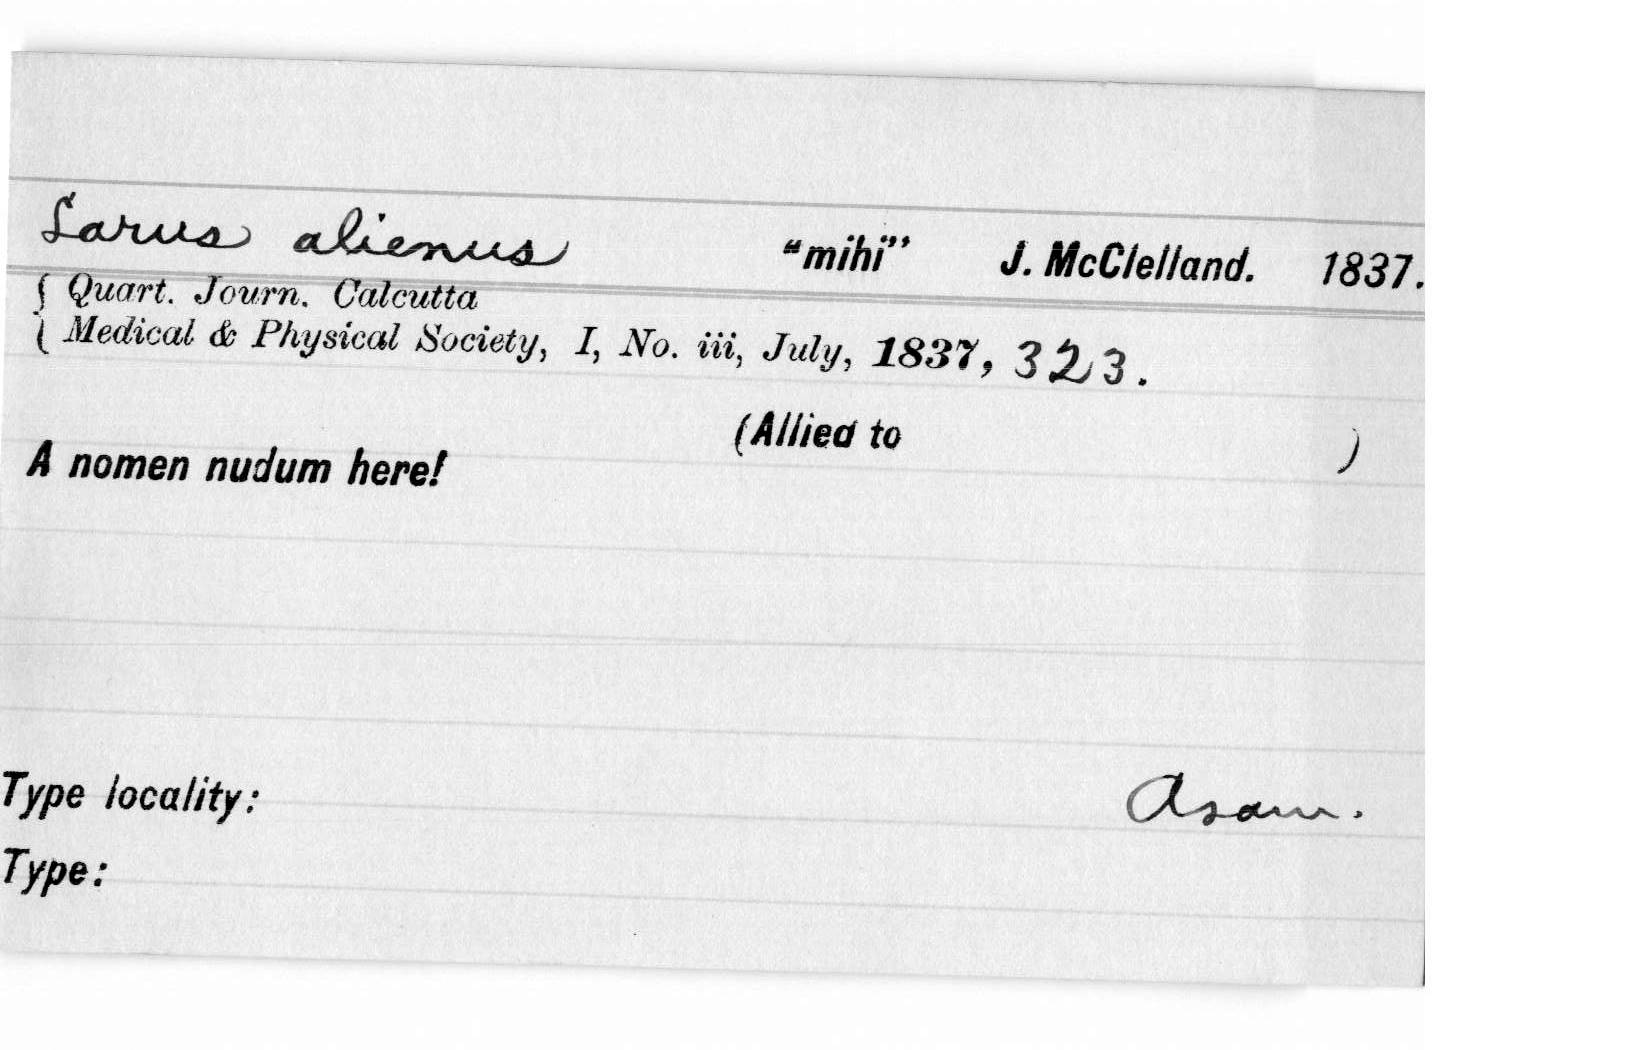 Larus alienus "mihi" J. McClelland. 1837.
{ Quart. Journn. Calcutta
{ Medical & Physical Society, I, No. iii, July, 1837, 323.
(Allied to )
A nomen nudum here!
Type locality: Asam.
Type: